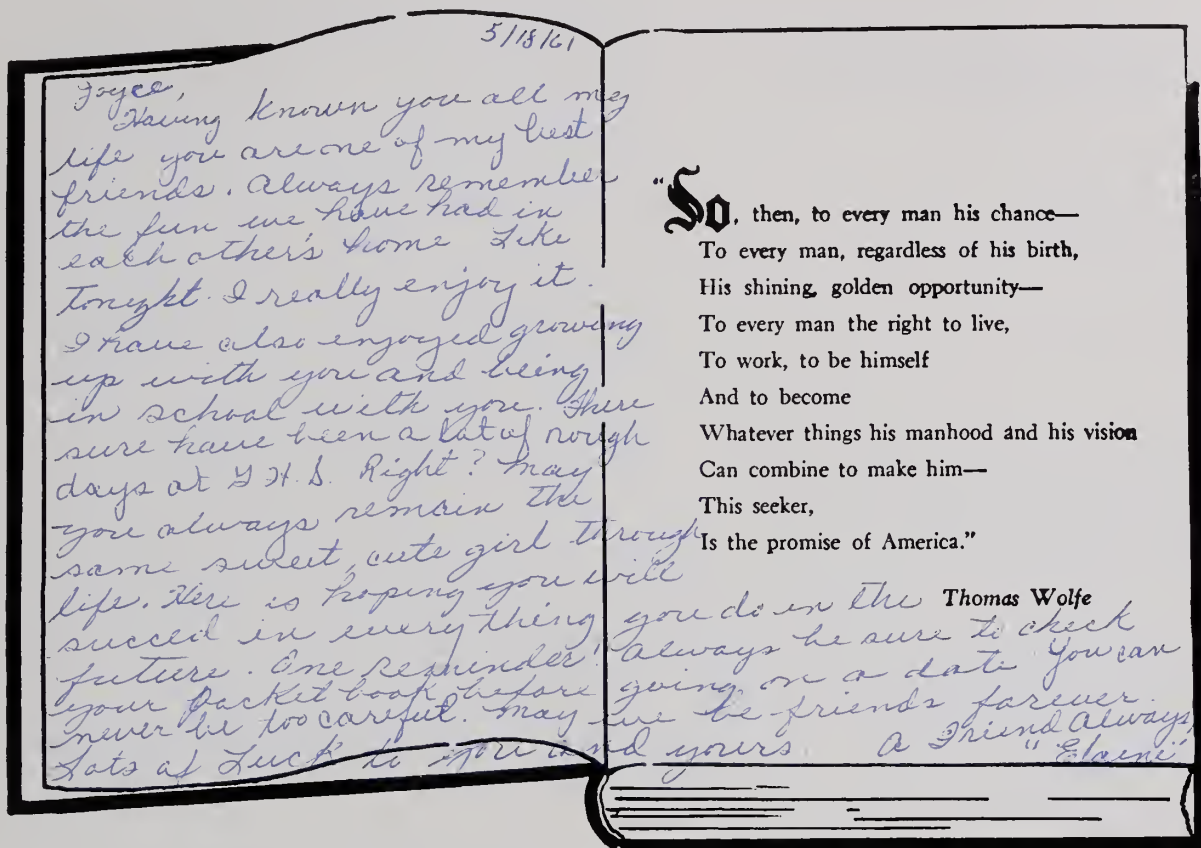 5/18/61
Joyce,
Having known you all my
life you are one of my best
friends. Always remember
the fun we have had in
each other's home Like
Tonight. I really enjoy it.
I have also enjoyed growing
up with you and being
in school with you. There
sure have been a lot of rough
days at G.H.S. Right? May
you always remain the
same sweet, cute girl through
life. Here is hoping you will
succeed in everything you do in the
future. One reminder! Always be sure to check
your Pocket book before going on a date You can
never be too careful. May we be friends forever.
Lots of Luck to you and yours. A Friend Always,
"Elaine"
"So, then, to every man his chance—
To every man, regardless of his birth,
His shining, golden opportunity—
To every man the right to live,
To work, to be himself
And to become
Whatever things his manhood and his vision
Can combine to make him—
This seeker,
Is the promise of America."
Thomas Wolfe